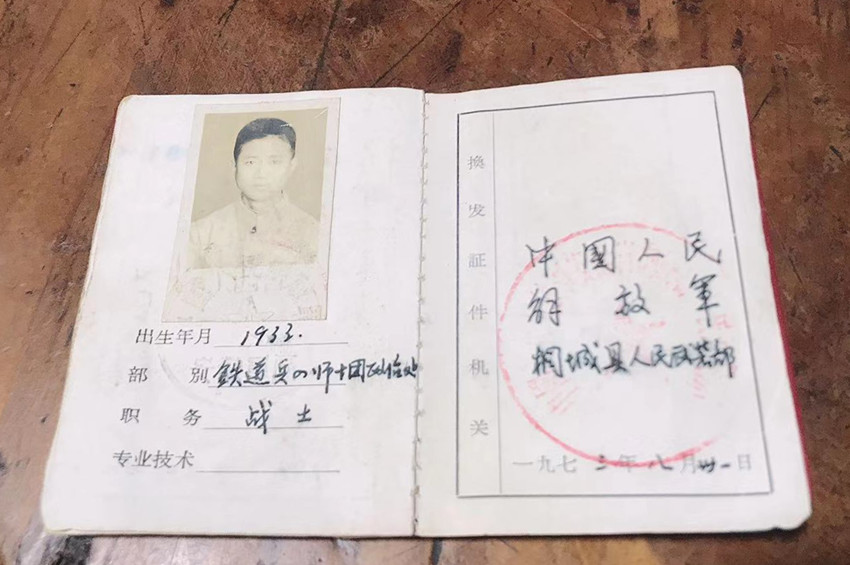 出生年月 1933.
部别 鉄道兵の师十团政治处
职务 战士
专业技术
换发证件机关
中國人民
解放軍
桐城县人民武装部
一九七三年八月卅一日